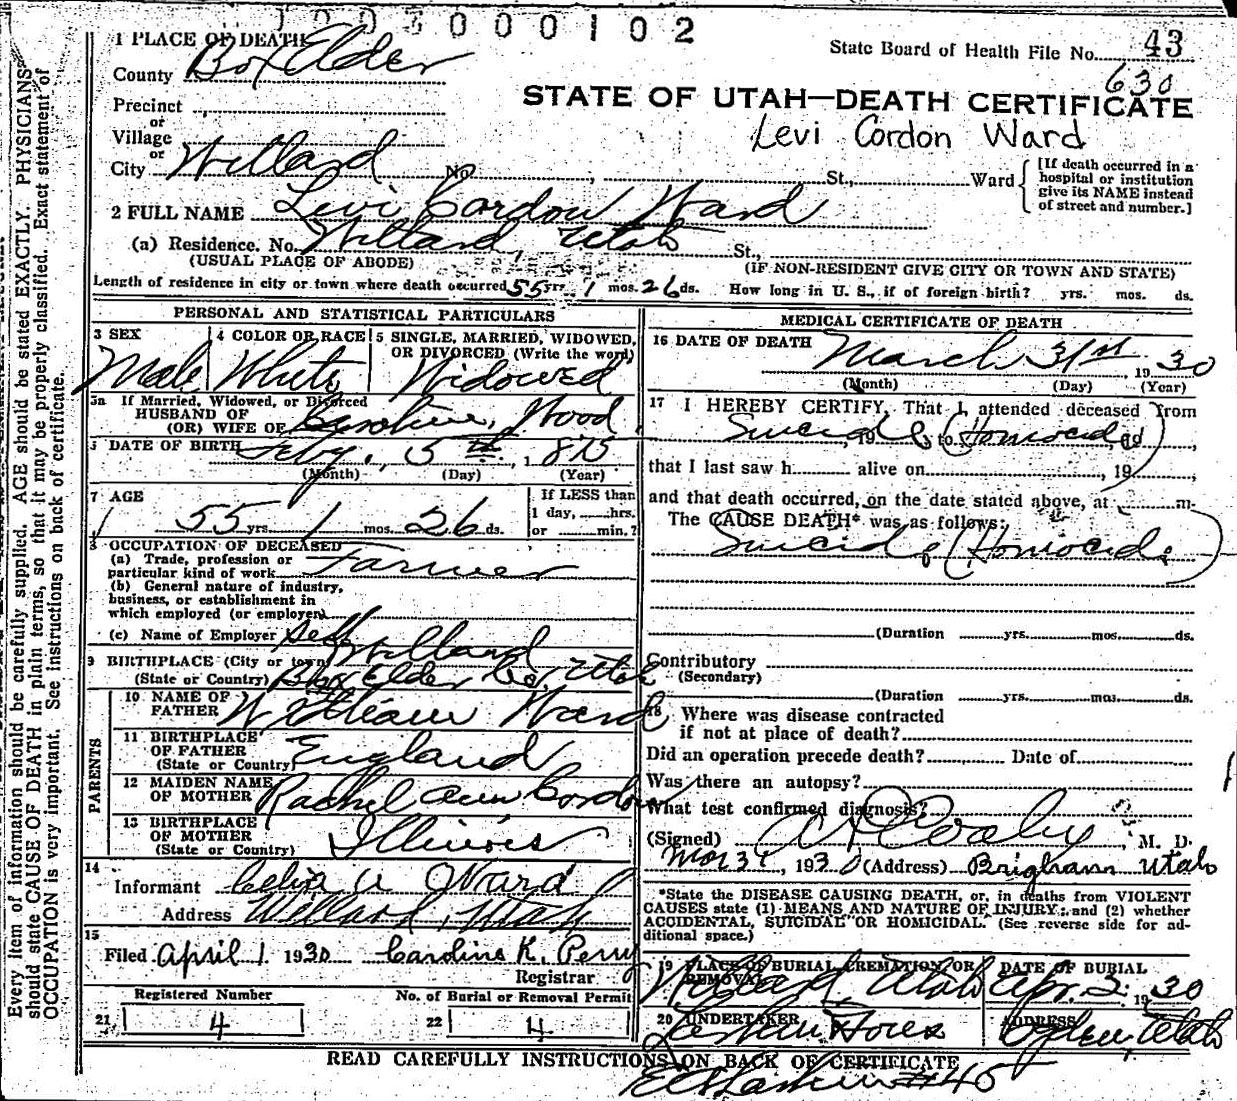 1003000102
1 PLACE OF DEATH
State Board of Health File No. 43
County Box Elder
630
Precinct
or
Village
or
City Willard No. , St., Ward
STATE OF UTAH—DEATH CERTIFICATE
Levi Cordon Ward
[If death occurred in a
hospital or institution
give its NAME instead
of street and number.]
2 FULL NAME Levi Cordon Ward
(a) Residence. No. Willard, Utah St.,
(USUAL PLACE OF ABODE) (IF NON-RESIDENT GIVE CITY OR TOWN AND STATE)
Length of residence in city or town where death occurred 55 yrs. 1 mos. 26 ds. How long in U. S., if of foreign birth? yrs. mos. ds.
PERSONAL AND STATISTICAL PARTICULARS
3 SEX
Male
4 COLOR OR RACE
White
5 SINGLE, MARRIED, WIDOWED,
OR DIVORCED (Write the word)
Widowed
5a If Married, Widowed, or Divorced
HUSBAND OF
(OR) WIFE OF Caroline Wood
DATE OF BIRTH Feby. 5th, 1875
(Month) (Day) (Year)
7 AGE
55 yrs. 1 mos. 26 ds.
If LESS than
1 day, hrs.
or min.?
8 OCCUPATION OF DECEASED
(a) Trade, profession or
particular kind of work Farmer
(b) General nature of industry,
business, or establishment in
which employed (or employer)
(c) Name of Employer Self
9 BIRTHPLACE (City or town) Willard
(State or Country) Box Elder Co, Utah
PARENTS
10 NAME OF
FATHER William Ward
11 BIRTHPLACE
OF FATHER
(State or Country) England
12 MAIDEN NAME
OF MOTHER Rachel Ann Cordon
13 BIRTHPLACE
OF MOTHER
(State or Country) Illinois
14
Informant Ward
Address Willard, Utah
15
Filed April 1 1930 Caroline K. Perry
Registrar
Registered Number
21 4
No. of Burial or Removal Permit
22 4
MEDICAL CERTIFICATE OF DEATH
16 DATE OF DEATH
March 31st, 1930
(Month) (Day) (Year)
17 I HEREBY CERTIFY, That I attended deceased from
Suicide (Homocide)
, 19 , to , 19 ,
that I last saw h alive on , 19
and that death occurred, on the date stated above, at m.
The CAUSE DEATH* was as follows:
Suicide (Homocide)
(Duration yrs. mos. ds.
Contributory
(Secondary)
(Duration yrs. mos. ds.
18 Where was disease contracted
if not at place of death?
Did an operation precede death? Date of
Was there an autopsy?
What test confirmed diagnosis?
(Signed) , M. D.
Mar 31, 1930 (Address) Brigham Utah
*State the DISEASE CAUSING DEATH, or, in deaths from VIOLENT
CAUSES state (1) MEANS AND NATURE OF INJURY; and (2) whether
ACCIDENTAL, SUICIDAL OR HOMICIDAL. (See reverse side for ad-
ditional space.)
19 PLACE OF BURIAL, CREMATION, OR
REMOVAL
Willard, Utah
DATE OF BURIAL
Apr. 2, 1930
20 UNDERTAKER
ADDRESS
Ogden, Utah
READ CAREFULLY INSTRUCTIONS ON BACK OF CERTIFICATE
#45
Every item of information should be carefully supplied. AGE should be stated EXACTLY. PHYSICIANS
should state CAUSE OF DEATH in plain terms, so that it may be properly classified. Exact statement of
OCCUPATION is very important. See instructions on back of certificate.